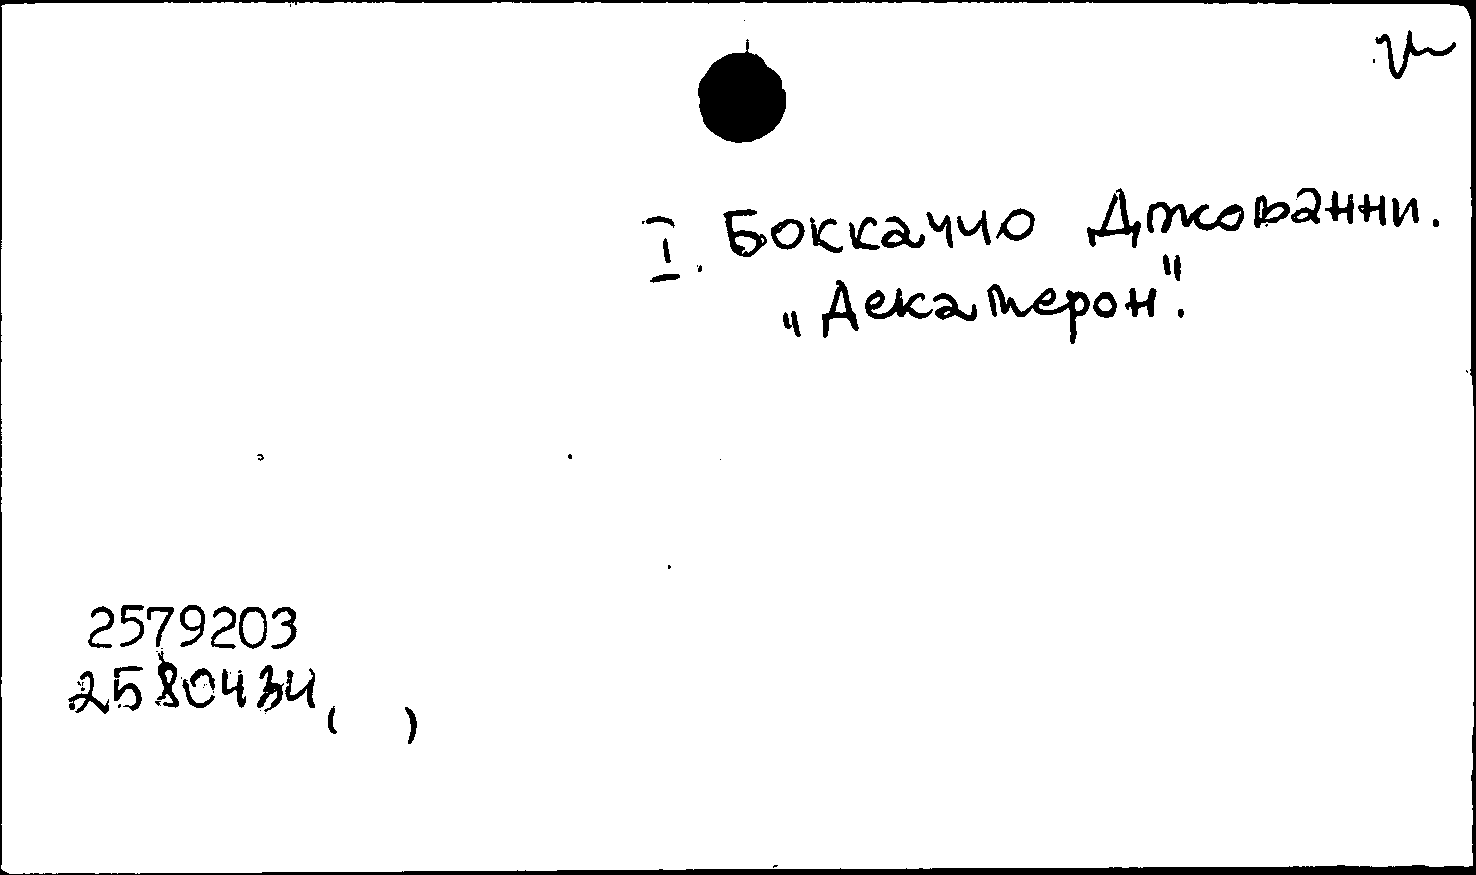 I. Боккаччо Джованни.
„Декамерон".
2579203
2580434 ( )